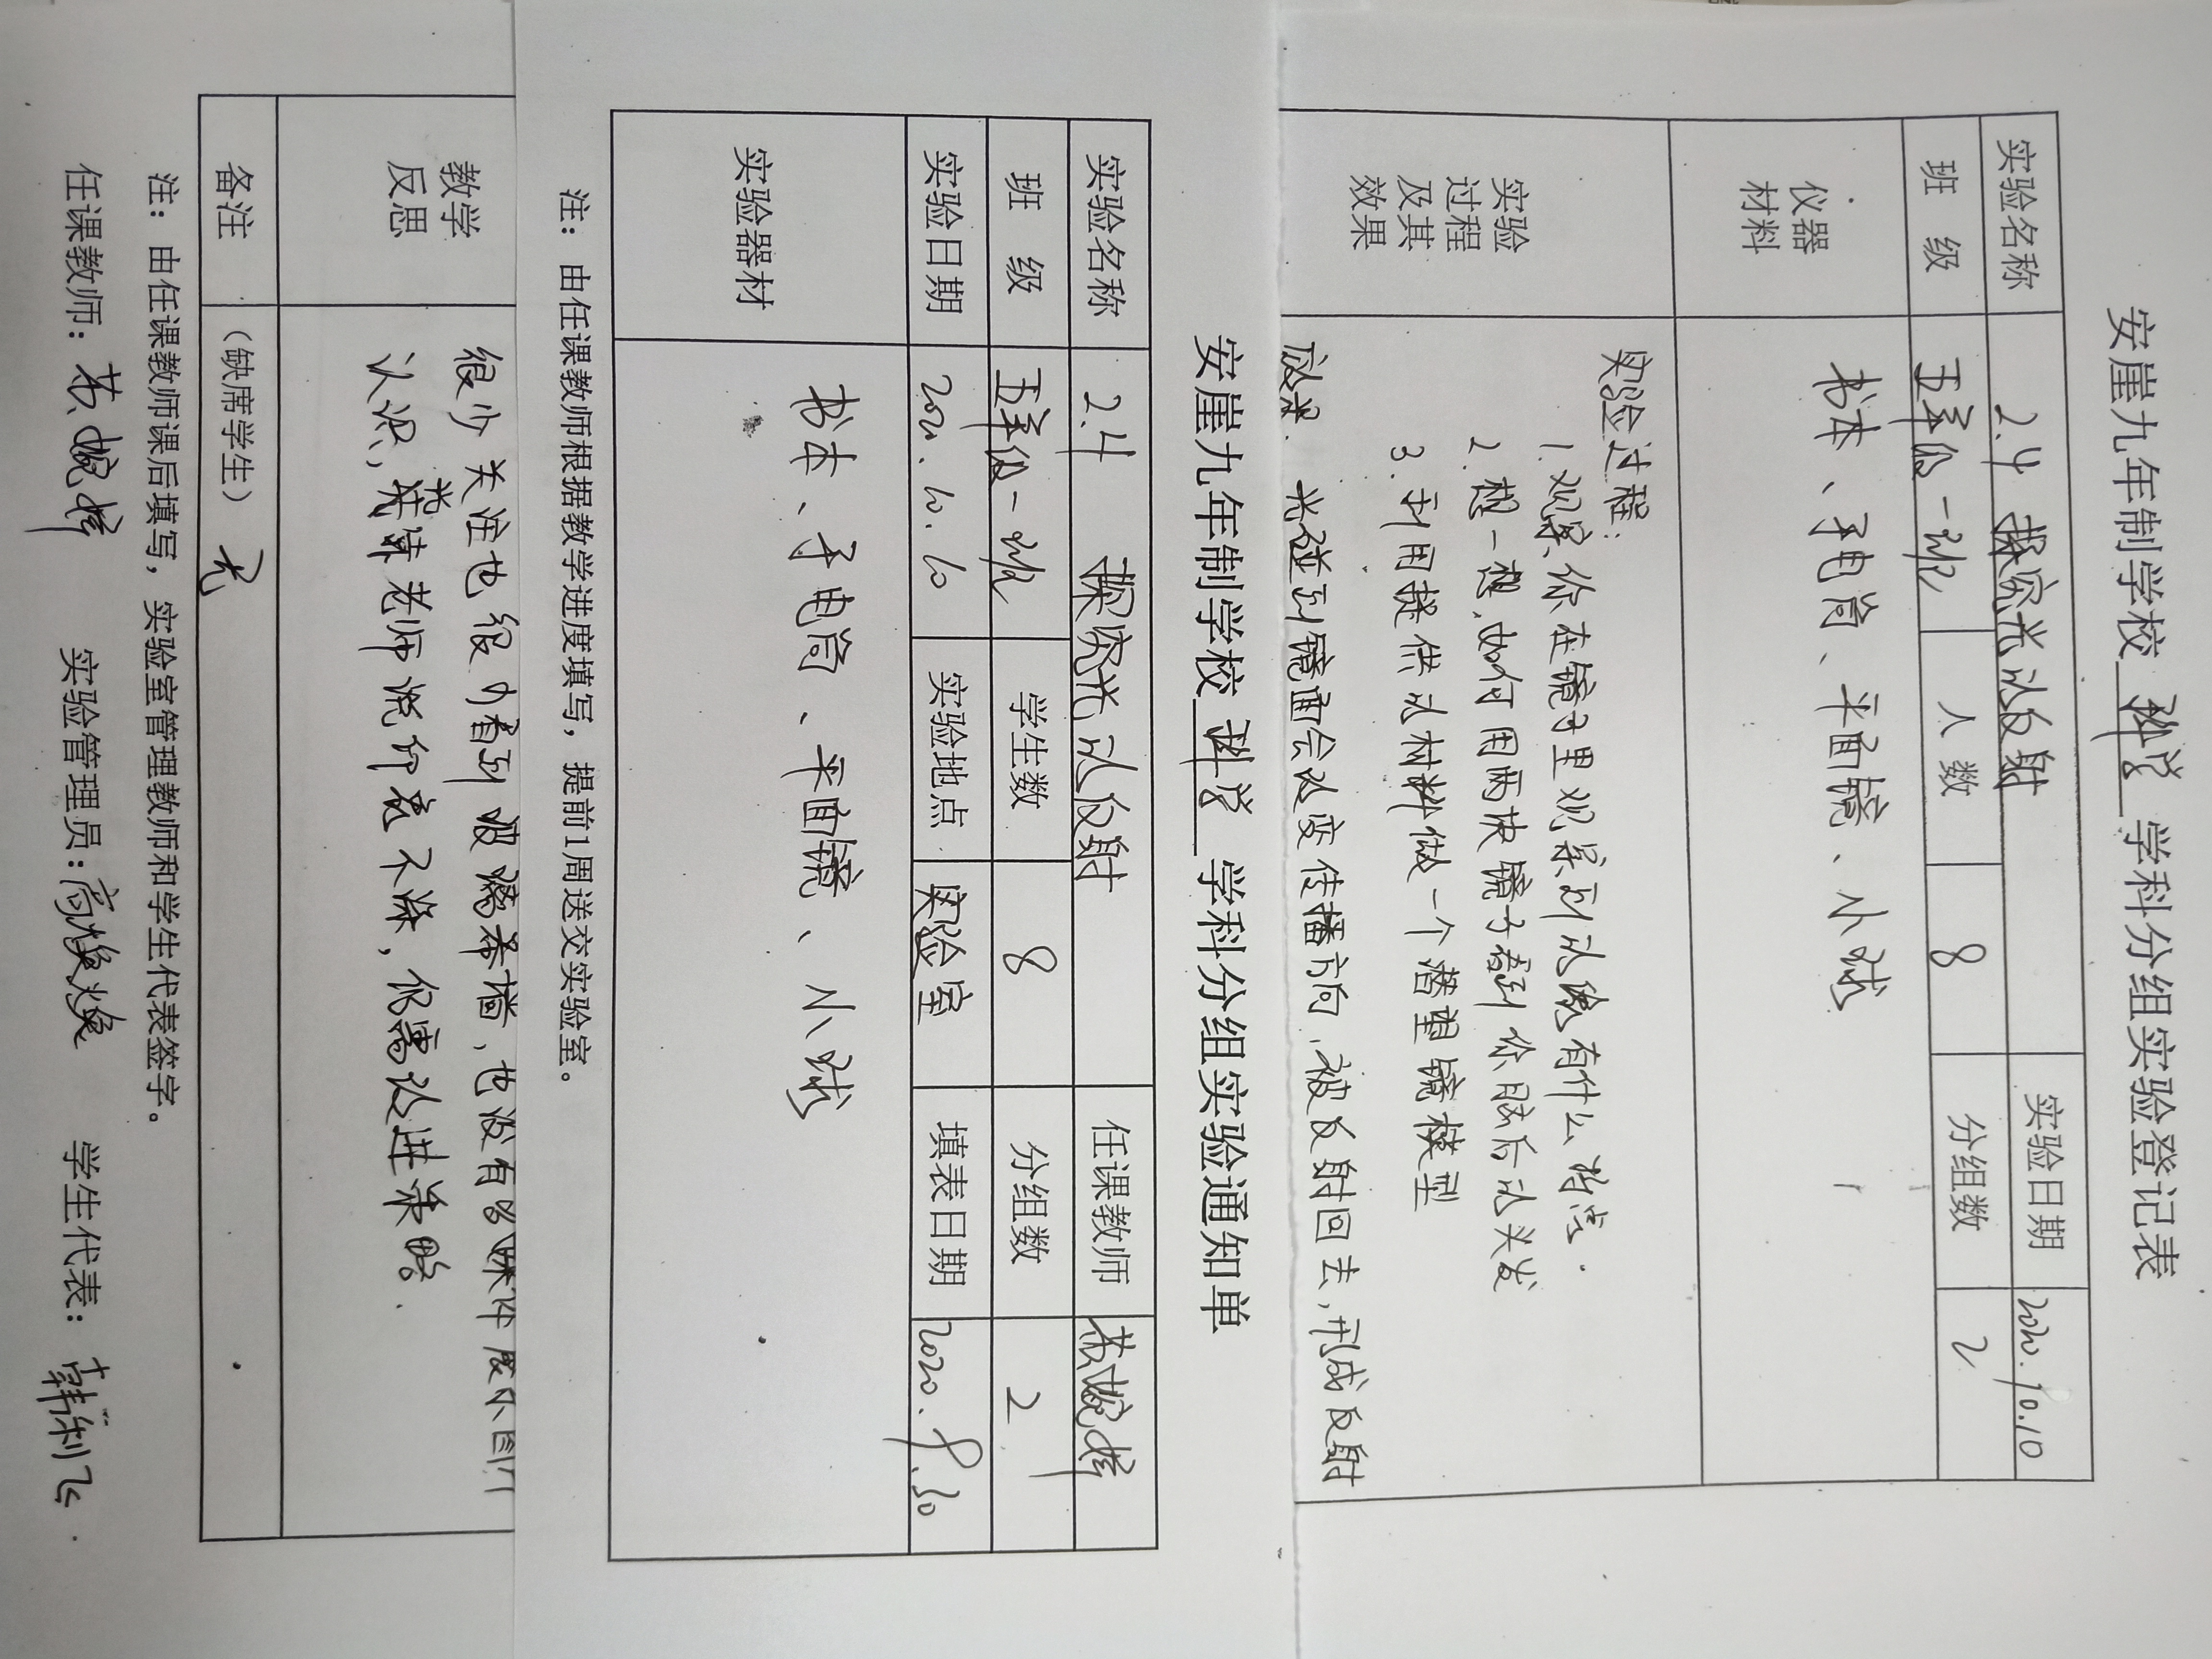 安崖九年制学校 科学 学科分组实验登记表
实验名称 2.4 探究光的反射 实验日期 2020.10.10
班 级 五年级一班 人 数 8 分组数 2
仪器材料 书本、手电筒、平面镜、小球
实验过程及其效果
实验过程:
1.观察你在镜子里观察到的像有什么特点.
2.想一想,如何用两块镜子看到你脑后的头发
3.利用提供的材料做一个潜望镜模型
效果. 光碰到镜面会改变传播方向,被反射回去,形成反射
安崖九年制学校 科学 学科分组实验通知单
实验名称 2.4 探究光的反射 任课教师
班 级 五年级一班 学生数 8 分组数 2
实验日期 2020.10.10 实验地点 实验室 填表日期 2020.9.30
实验器材 书本、手电筒、平面镜、小球
注：由任课教师根据教学进度填写，提前1周送交实验室。
教学反思
很少关注也很少看到玻璃幕墙,也没有 课件展示图片
认识, 老师说印象不深,仍需改进策略.
备注 （缺席学生） 无
注：由任课教师课后填写，实验室管理教师和学生代表签字。
任课教师: 实验管理员: 高焕焕 学生代表: 韩利飞.